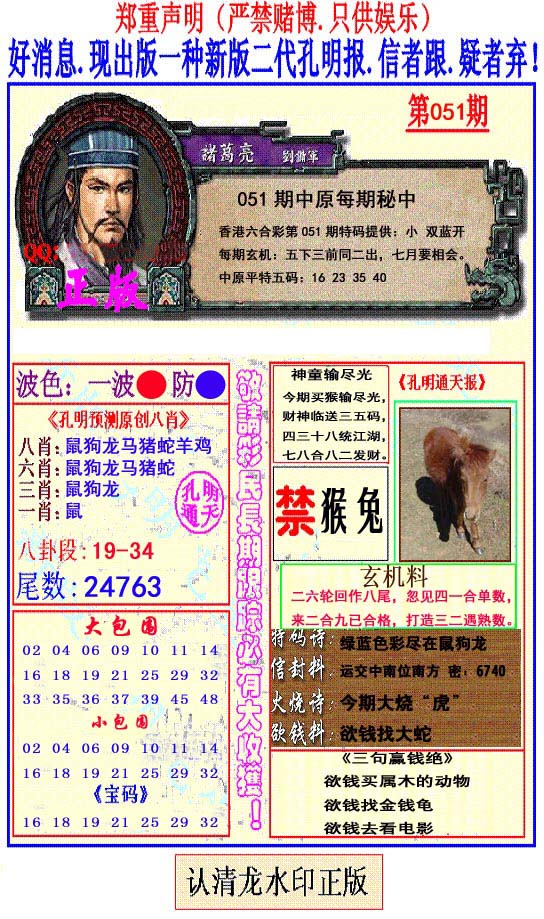 郑重声明（严禁赌博.只供娱乐）
好消息.现出版一种新版二代孔明报.信者跟.疑者弃!
第051期
諸葛亮 劉備軍
051期中原每期秘中
香港六合彩第051期特码提供：小 双蓝开
每期玄机：五下三前同二出，七月要相会。
中原平特五码：16 23 35 40
QQ:
正版
波色：一波 防
《孔明预测原创八肖》
八肖:鼠狗龙马猪蛇羊鸡
六肖:鼠狗龙马猪蛇
三肖:鼠狗龙
一肖:鼠
孔明通天
八卦段:19-34
尾数:24763
大包围
02 04 06 09 10 11 14
16 18 19 21 25 29 32
33 35 36 37 39 45 48
小包围
02 04 06 09 10 11 14
16 18 19 21 25 29 32
《宝码》
16 18 19 21 25 29 32
敬請彩民長期跟踪必有大收獲！
神童输尽光
今期买猴输尽光，
财神临送三五码，
四三十八统江湖，
七八合八二发财。
《孔明通天报》
禁猴兔
玄机料
二六轮回作八尾，忽见四一合单数，
来二合九已合格，打造三二遇熟数。
特码诗:绿蓝色彩尽在鼠狗龙
信封料:运交中南位南方 密：6740
火烧诗:今期大烧“虎”
欲钱料:欲钱找大蛇
《三句赢钱绝》
欲钱买属木的动物
欲钱找金钱龟
欲钱去看电影
认清龙水印正版